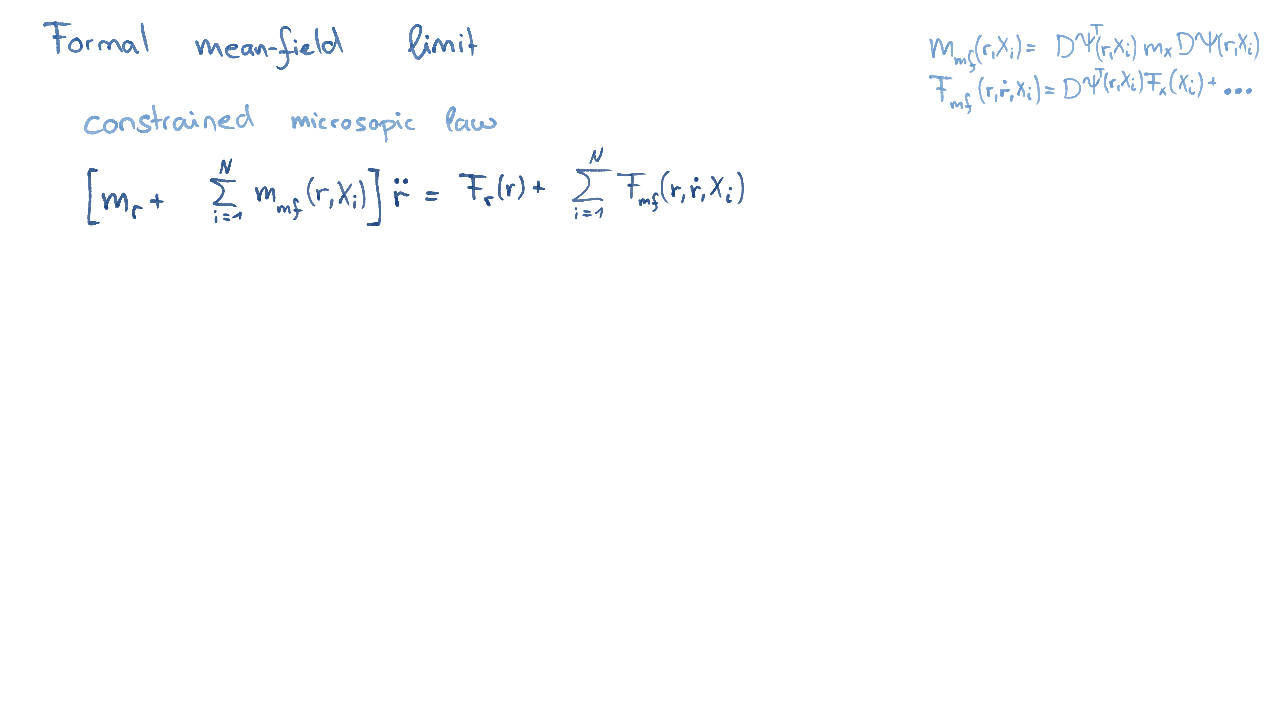 Formal mean-field limit
m_mf(r,X_i) = DΨ^T(r,X_i) m_x DΨ(r,X_i)
F_mf(r,ṙ,X_i) = DΨ^T(r,X_i) F_x(X_i) + ...
constrained microsopic law
[m_r + ∑_{i=1}^N m_mf(r,X_i)] r̈ = F_r(r) + ∑_{i=1}^N F_mf(r,ṙ,X_i)